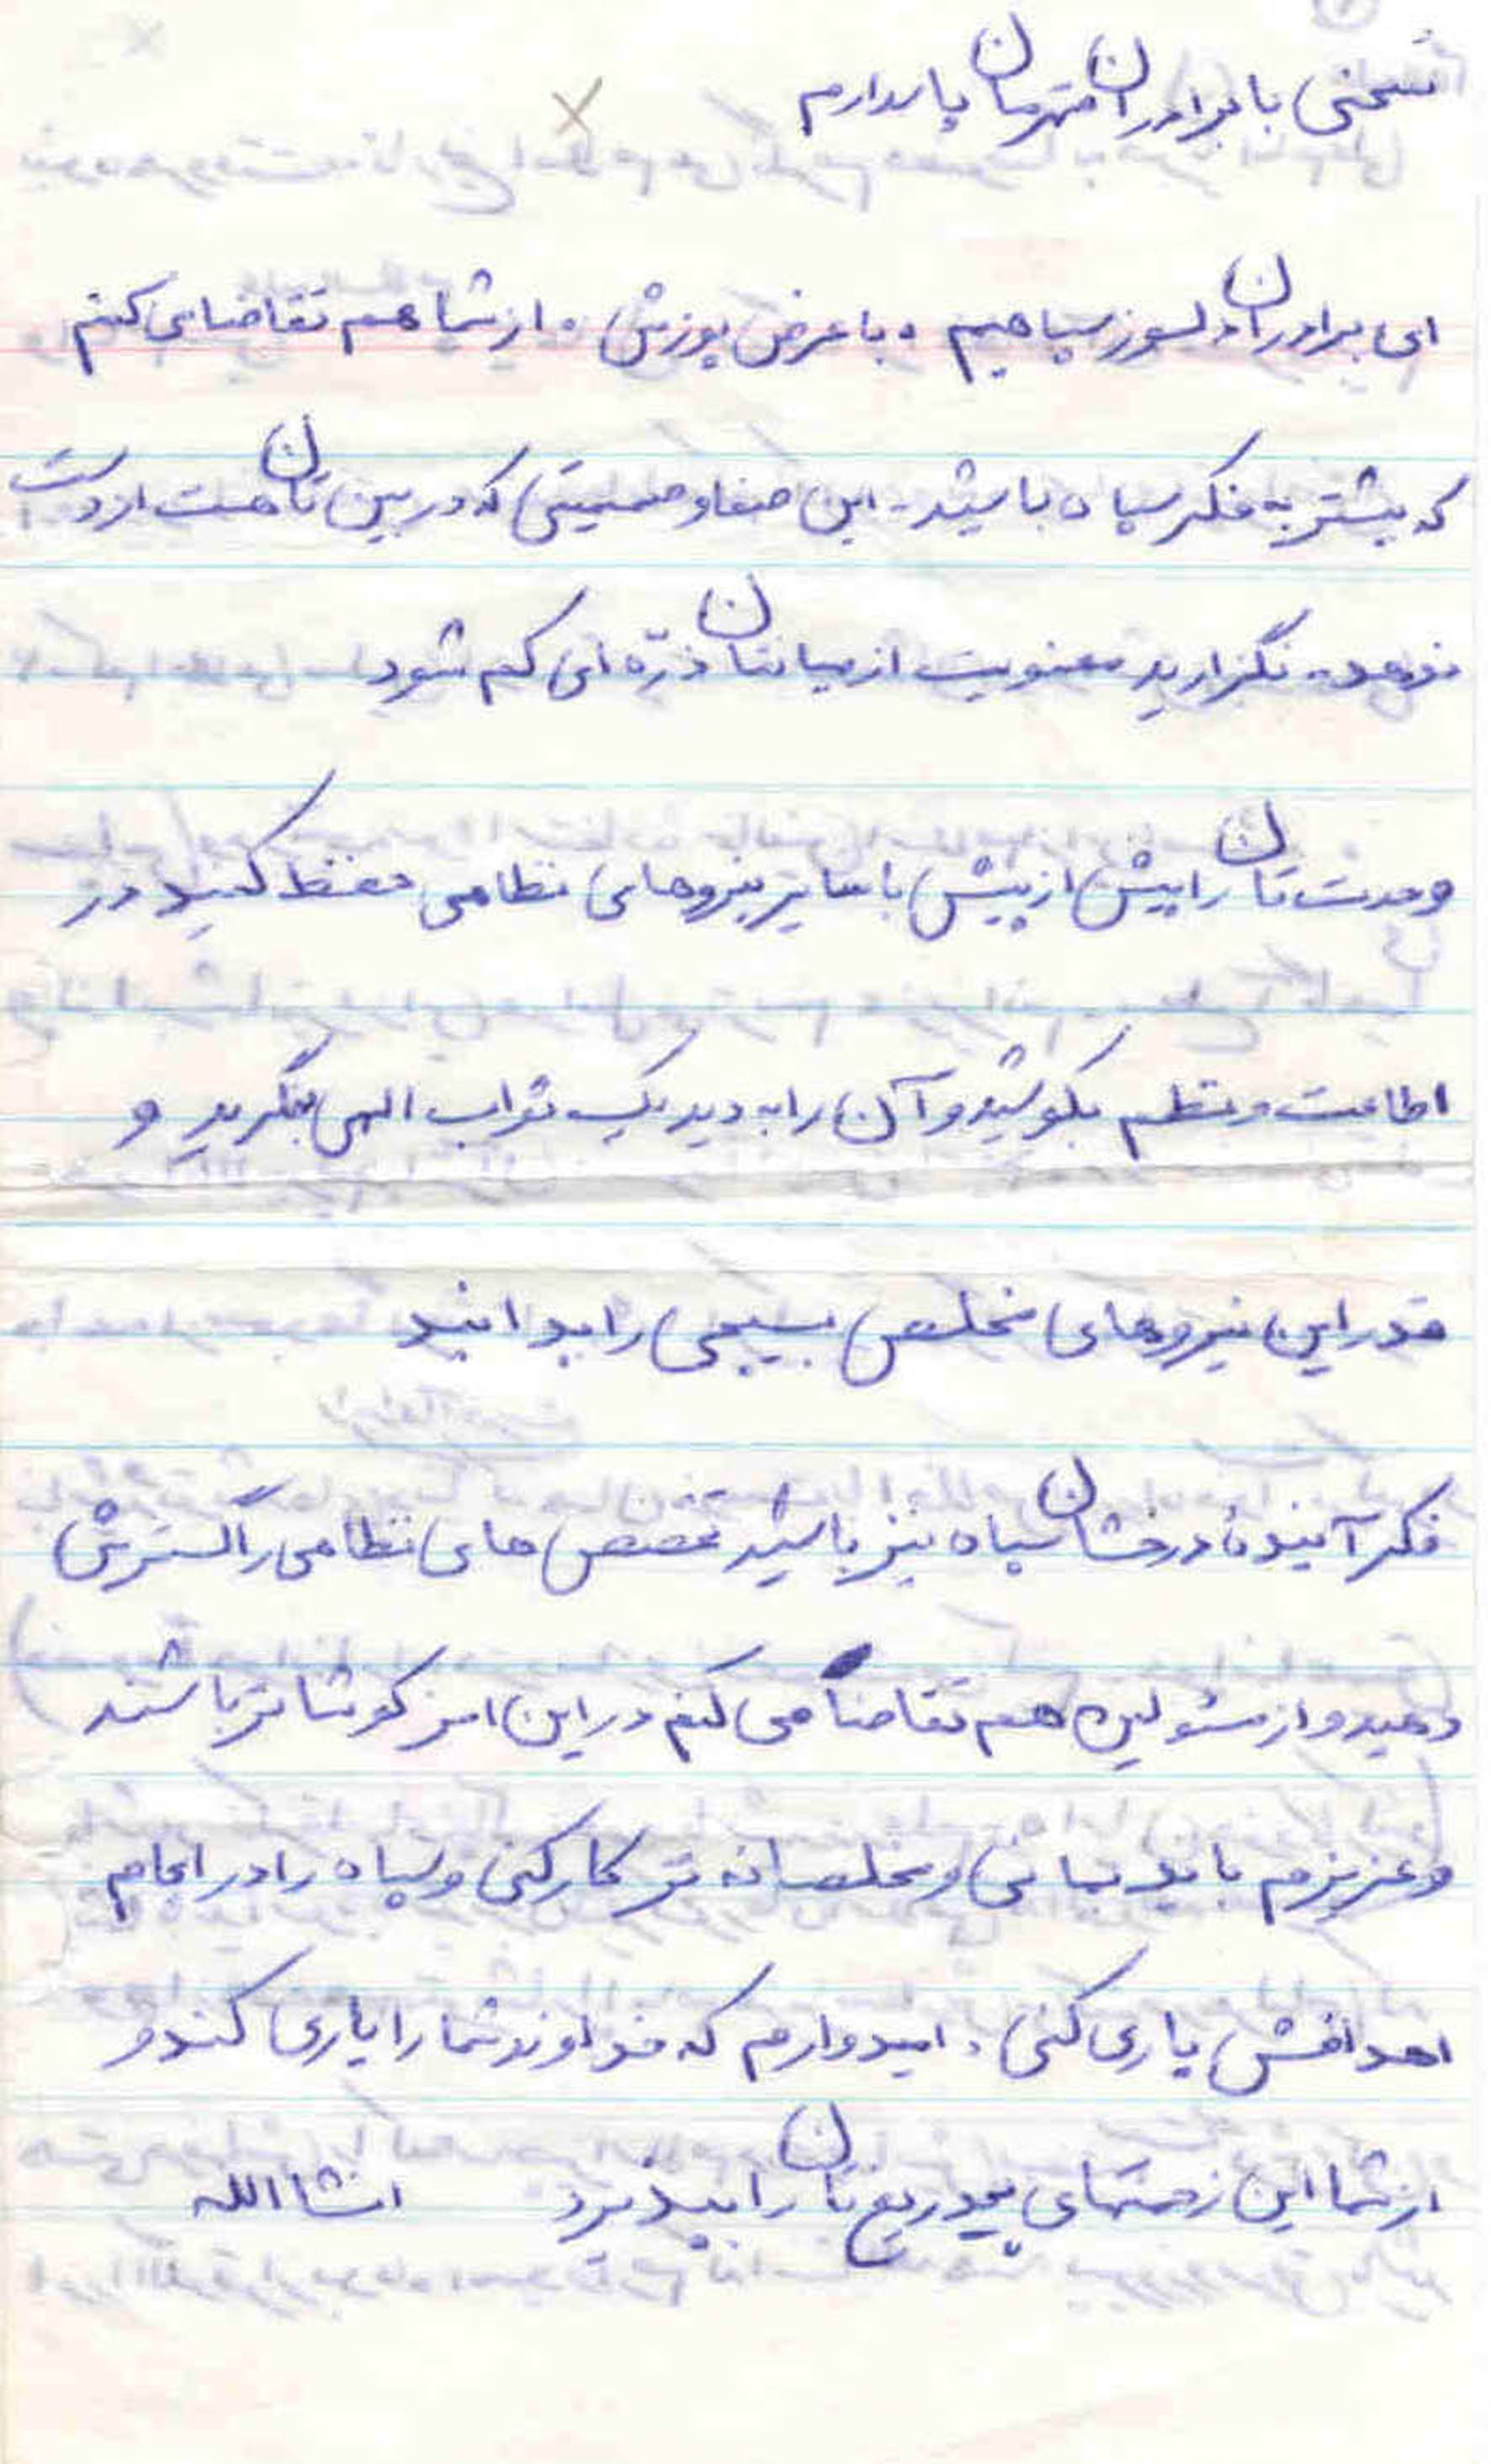 سخنی با برادران قهرمان پاسدارم
ای برادران دلسوز سپاهیم ، با عرض پوزش ، از شما هم تقاضا می کنم
که بیشتر به فکر سپاه باشید . این صفا و صمیمیتی که در بین تان هست از دست
ندهید . نگزارید معنویت از میانتان ذرّه ای کم شود
وحدت تان را بیش از پیش با سایر نیروهای نظامی حفظ کنید در
اطاعت و نظم بکوشید و آن را به دید یک ثواب الهی بنگرید و
قدر این نیروهای مخلص بسیجی را بدانید
فکر آیندهٔ درخشان سپاه نیز باشید تخصص های نظامی را گسترش
دهید و از مسئولین هم تقاضا می کنم در این امر کوشا تر باشند
و عزیزم باید بمانی و مخلصانه تر کار کنی و سپاه را در انجام
اهدافش یاری کنی . امیدوارم که خداوند شما را یاری کند و
از شما این زحمتهای بی دریغ تان را بپذیرد انشا الله